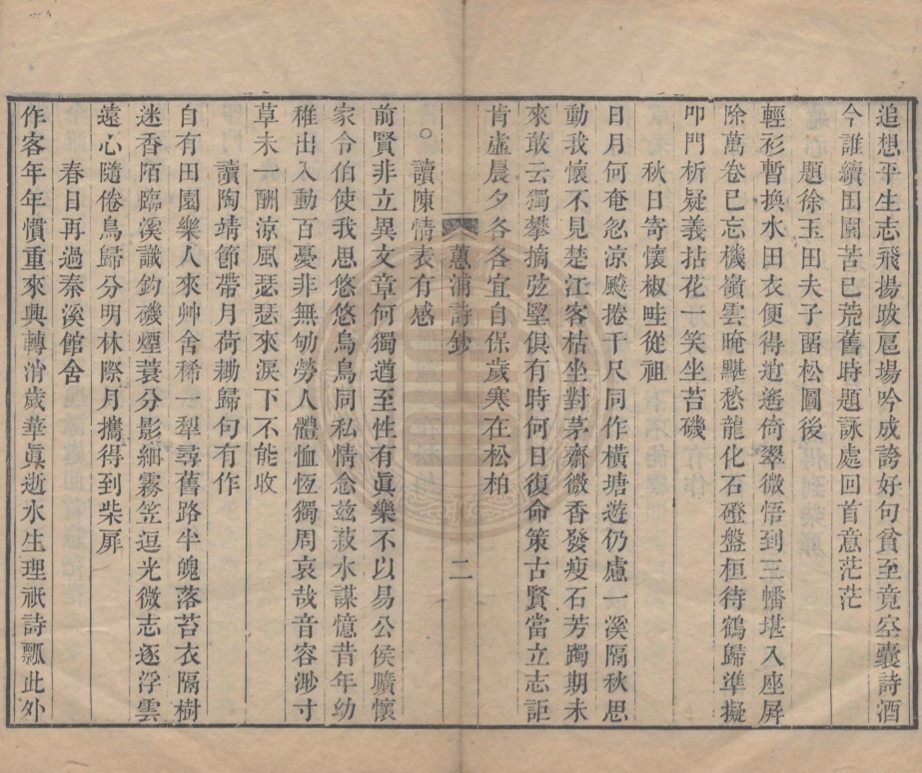 追想平生志飛揚跋扈場吟成誇好句貧至竟空囊詩酒
今誰續田園苦已荒舊時題詠處回首意茫茫
題徐玉田夫子畱松圖後
輕衫暫換水田衣便得逍遙倚翠微悟到三幡堪入座屛
除萬卷已忘機嶺雲晻靆愁龍化石磴盤桓待鶴歸準擬
叩門析疑義拈花一笑坐苔磯
秋日寄懷椒畦從祖
日月何奄忽涼飈捲千尺同作橫塘遊仍慮一溪隔秋思
動我懷不見楚江客枯坐對茅齋微香發瘦石芳躅期未
來敢云獨攀摘弦壂俱有時何日復命策古賢當立志詎
肯虛晨夕各各宜自保歲寒在松柏
蕙浦詩鈔 二
○讀陳情表有感
前賢非立異文章何獨遒至性有眞樂不以易公侯曠懷
家令伯使我思悠悠烏鳥同私情念茲菽水謀憶昔年幼
稚出入動百憂非無劬勞人體恤恆獨周哀哉音容渺寸
草未一酬涼風瑟瑟來淚下不能收
讀陶靖節帶月荷耡歸句有作
自有田園樂人來艸舍稀一犂尋舊路半魄落苔衣隔樹
迷香陌臨溪識釣磯煙蓑分影細霧笠逗光微志逐浮雲
遠心隨倦鳥歸分明林際月攜得到柴屝
春日再過秦溪館舍
作客年年慣重來興轉消歲華眞逝水生理祇詩瓢此外